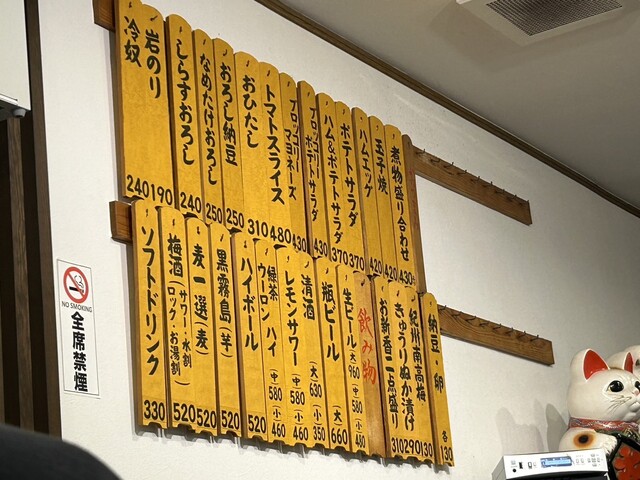 煮物盛り合わせ 430
玉子焼 420
ハムエッグ 420
ポテトサラダ 370
ハム&ポテトサラダ 370
ブロッコリー
ポテトサラダ 430
ブロッコリー
マヨネーズ 430
トマトスライス 480
おひたし 310
おろし納豆 250
なめたけおろし 250
しらすおろし 240
岩のり 190
冷奴 240
納豆・卵 各130
紀州南高梅 130
きゅうりぬか漬け 290
お新香二点盛り 310
飲み物
生ビール (大)960 (中)580 (小)480
瓶ビール (大)660
清酒 (大)630 (小)350
レモンサワー (中)580 (小)460
緑茶
ウーロン ハイ (中)580 (小)460
ハイボール 520
黒霧島(芋) 520
麦一選(麦) 520
梅酒(サワー・水割
ロック・お湯割) 520
ソフトドリンク 330
NO SMOKING
全席禁煙